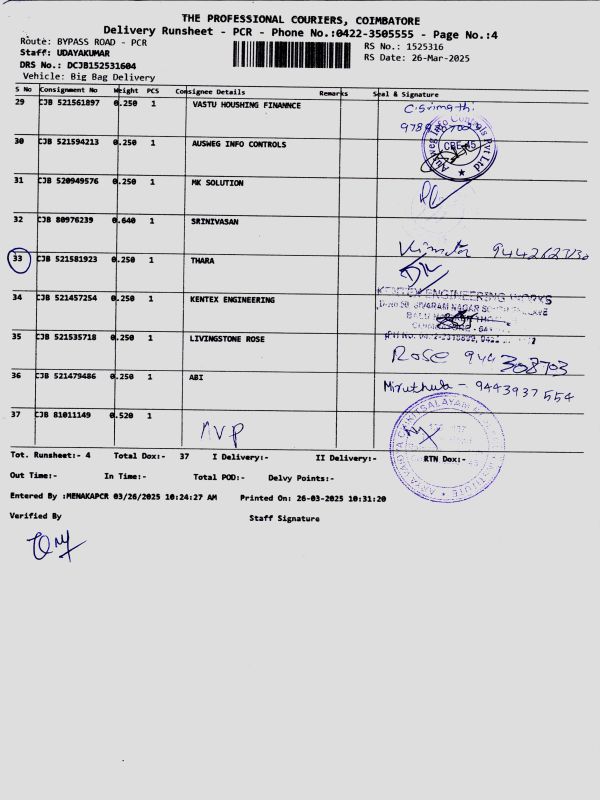 THE PROFESSIONAL COURIERS, COIMBATORE
Delivery Runsheet - PCR - Phone No.:0422-3505555 - Page No.:4
Route: BYPASS ROAD - PCR
RS No.: 1525316
Staff: UDAYAKUMAR
RS Date: 26-Mar-2025
DRS No.: DCJB152531604
Vehicle: Big Bag Delivery
S No Consignment No Weight PCS Consignee Details Remarks Seal & Signature
29 CJB 521561897 0.250 1 VASTU HOUSHING FINANNCE C. Srimathi
30 CJB 521594213 0.250 1 AUSWEG INFO CONTROLS Ausweg Info Controls Pvt Ltd CBE-45
31 CJB 520949576 0.250 1 MK SOLUTION
32 CJB 80976239 0.640 1 SRINIVASAN
33 CJB 521581923 0.250 1 THARA
34 CJB 521457254 0.250 1 KENTEX ENGINEERING KENTEX ENGINEERING WORKS
35 CJB 521535718 0.250 1 LIVINGSTONE ROSE
Rose
36 CJB 521479486 0.250 1 ABI Miruthula - 9443937554
37 CJB 81011149 0.520 1
AVP
Tot. Runsheet:- 4 Total Dox:- 37 I Delivery:- II Delivery:- RTN Dox:-
Out Time:- In Time:- Total POD:- Delvy Points:-
Entered By :MENAKAPCR 03/26/2025 10:24:27 AM Printed On: 26-03-2025 10:31:20
Verified By Staff Signature